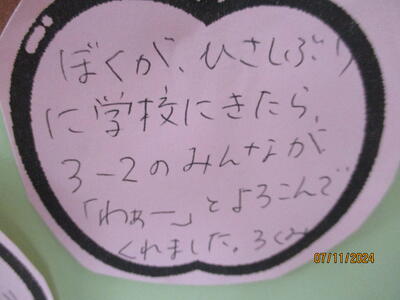 ぼくが、ひさしぶり
に学校にきたら、
3-2のみんなが
「わぁー」とよろこんで
くれました。ろくみ
07/11/2024